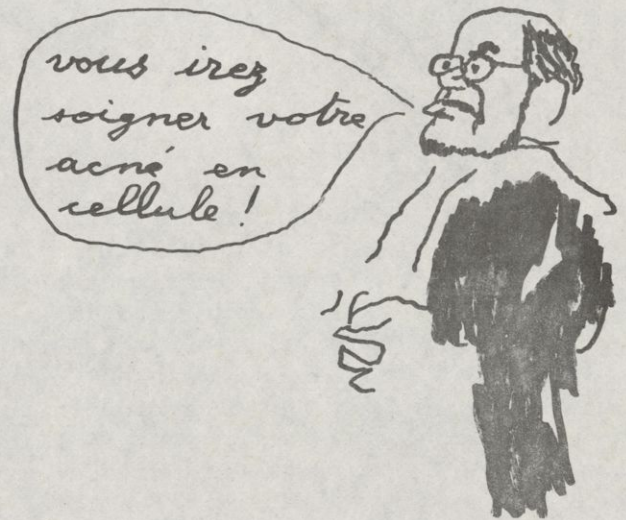 vous irez
soigner votre
acné en
cellule !